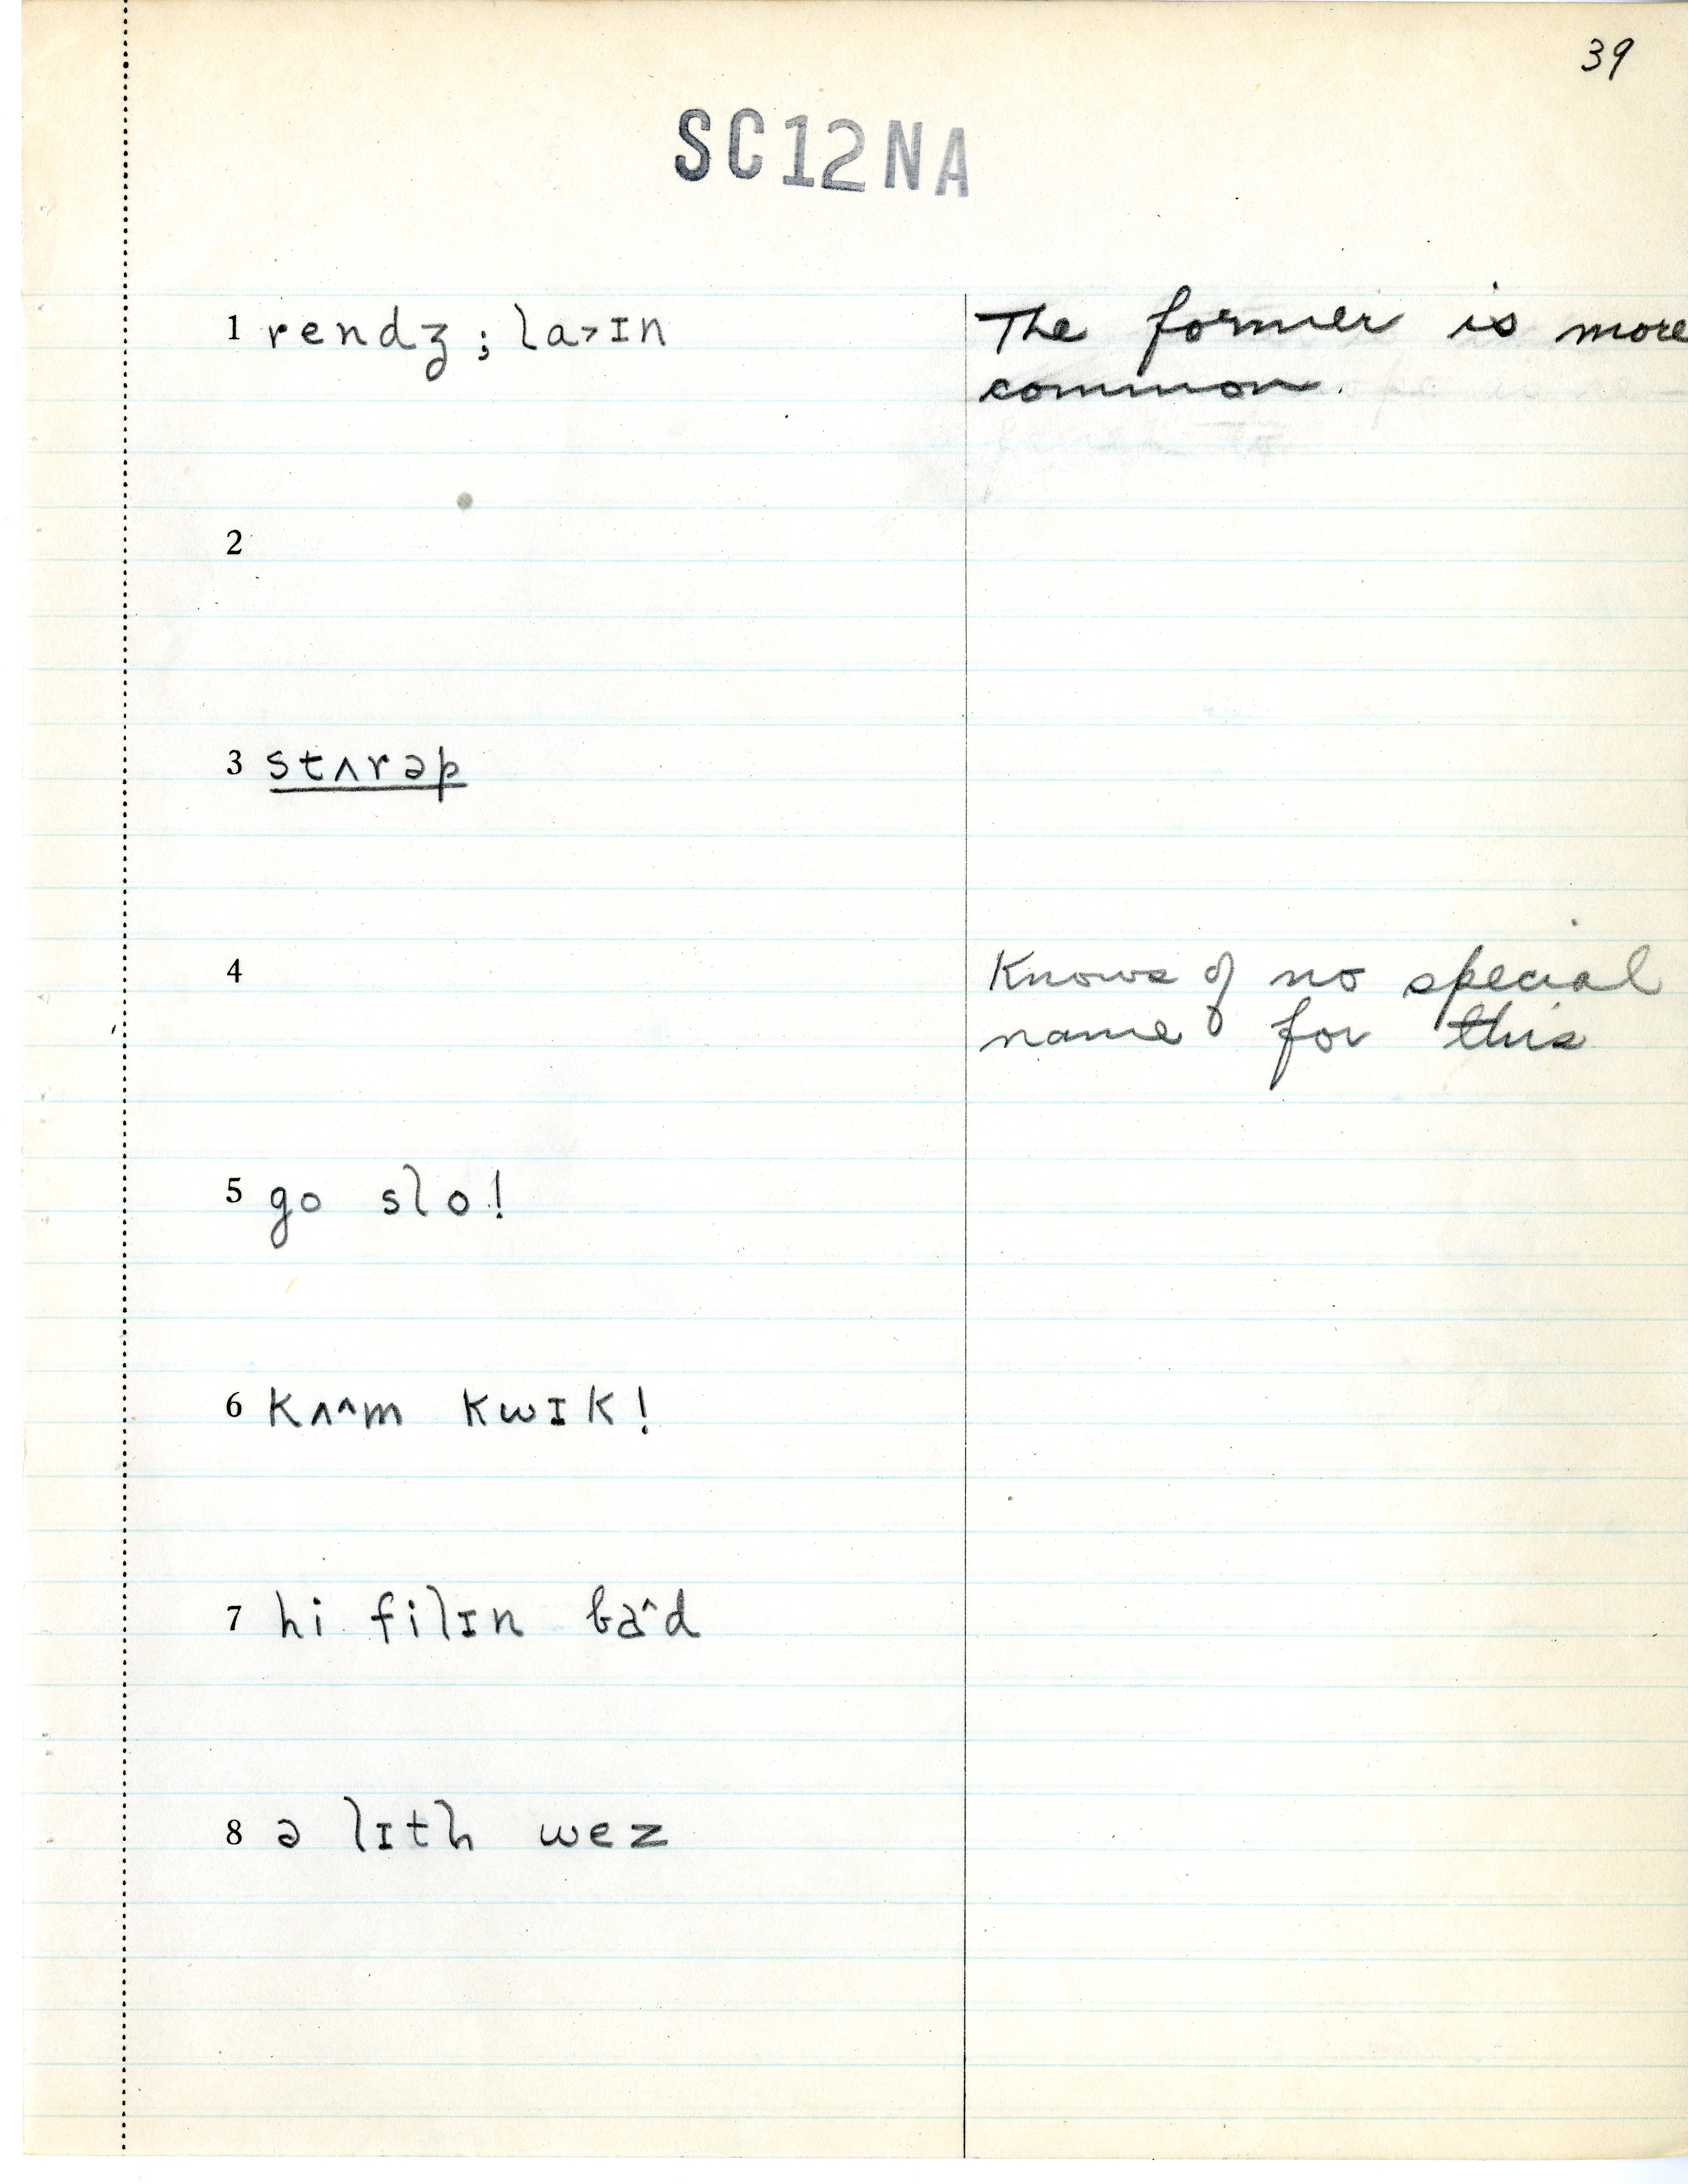 39
SC12NA
1 rendʒ; la>ɪn The former is more
common.
2
3 stʌrəp
4 Knows of no special
name for this
5 go slo!
6 kʌ^m kwɪk!
7 hi filɪn ba^d
8 ə lɪtl wez